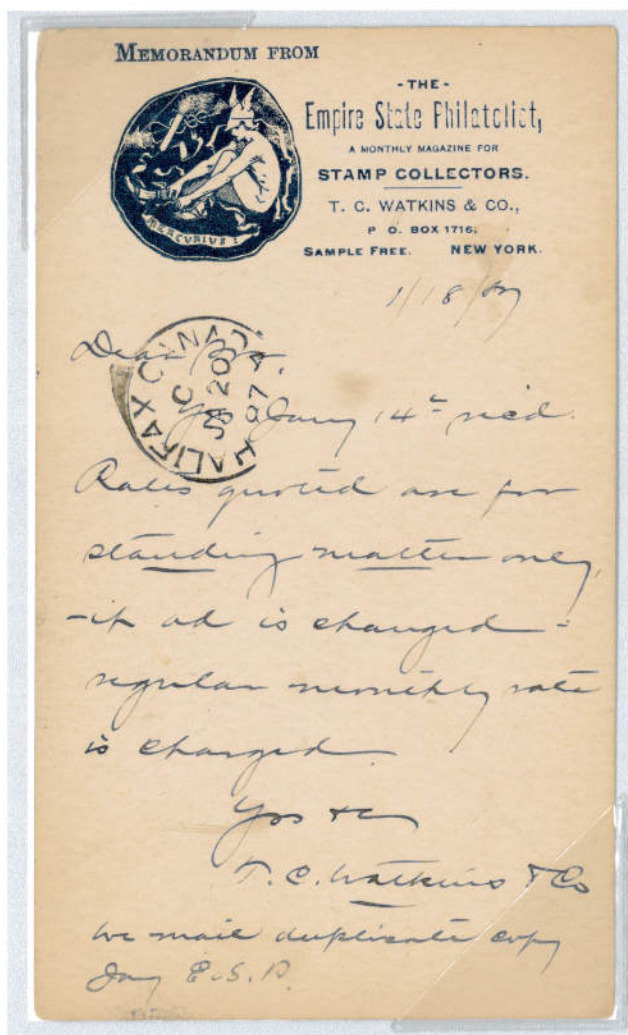 MEMORANDUM FROM
MERCURIUS:
- THE -
Empire State Philatelist,
A MONTHLY MAGAZINE FOR
STAMP COLLECTORS.
T. C. WATKINS & CO.,
P O. BOX 1716,
SAMPLE FREE. NEW YORK.
1/18/87
HALIFAX CANADA
C
JA 20
87
Dear
Jany 14th rec'd.
Rates quoted are for
standing matter only,
- if ad is changed -
regular monthly rate
is charged
Yrs &c
T. C. Watkins & Co
We mail duplicate copy
Jany E.S.P.